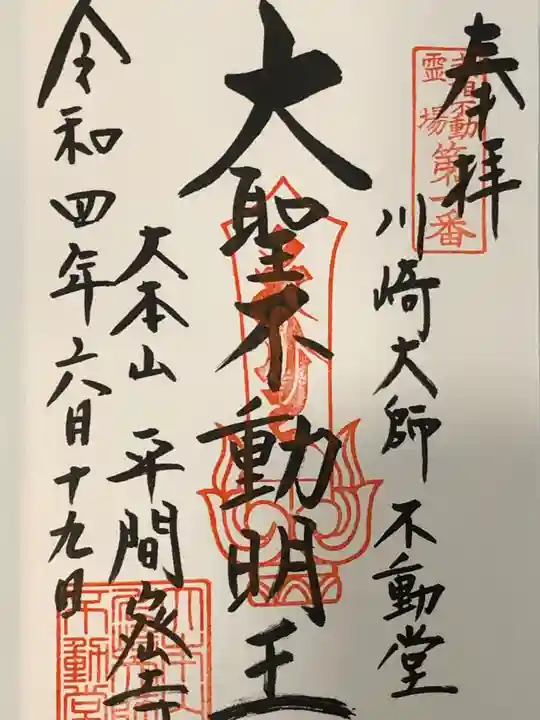 奉拝
霊場
第一番
川崎大師 不動堂
大聖不動明王
大本山 平間寺
令和四年六月十九日
不動堂